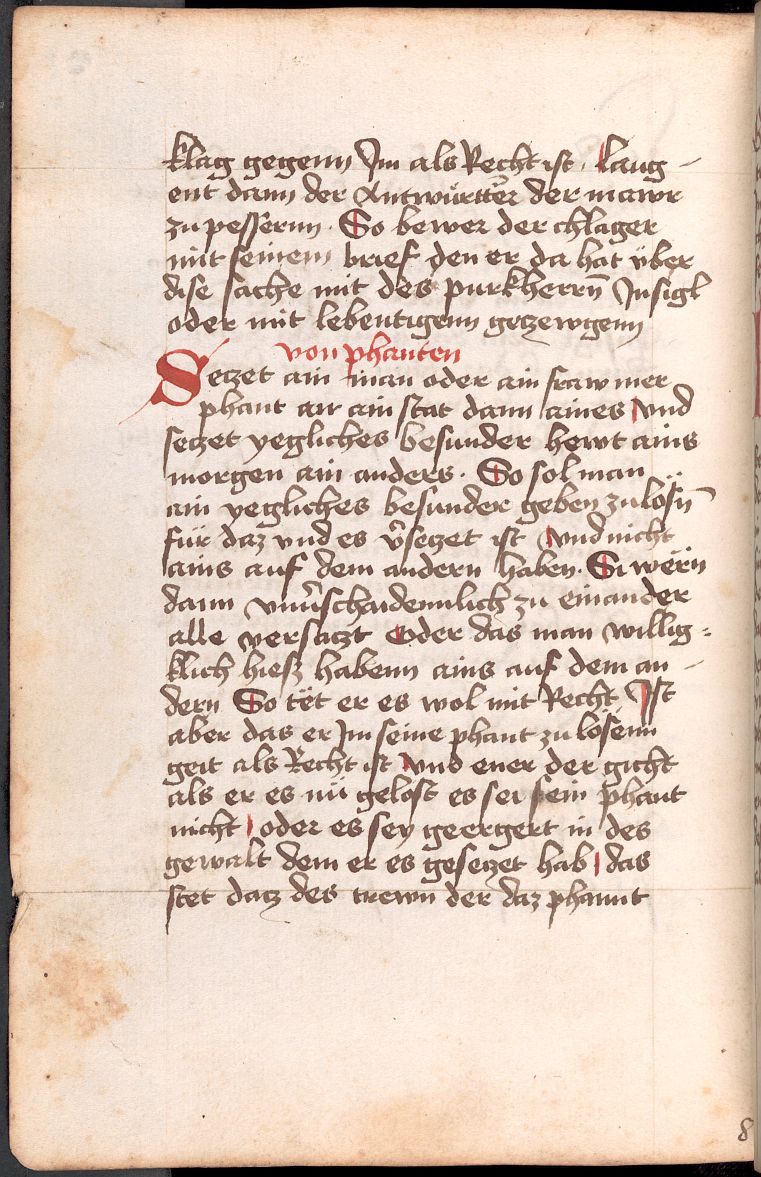 klag gegenn Im als Recht ist · laug-
ent dann der Antwürtter der mawr
zu pessernn · So bewer der chlager
mit seinem brief den er da hat über
dise sache mit des purkherrn̄ Insigl
oder mit lebentigenn getzewgenn
von phanten
Setzet ain man oder ain fraw mer
phant an ain stat dann aines vnd
setzet yegliches besunder hewt ains
morgen ain anders · So sol man
ain yegliches besunder geben zulösn̄
für daz vnd es v̄setzet ist vnd nicht
ains auf dem andern haben · Si wërn
dann vnūschaidennlich zu einander
alle versatzt Oder das man willig=
klich hiess habenn ains auf dem an-
dern So tët er es wol mit Recht Ist
aber das er Im seine phant zu lösenn
geit als Recht ist vnd ener der gicht
als er es nü gelost es sei sein phant
nicht oder es sey geergert in des
gewalt dem er es gesetzet hab das
stet datz des trewn der daz phannt
8